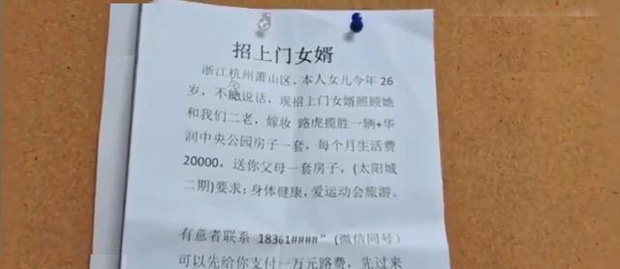 招上门女婿
浙江杭州萧山区,本人女儿今年26
岁,不能说话,现招上门女婿照顾她
和我们二老,嫁妆 路虎揽胜一辆+华
润中央公园房子一套,每个月生活费
20000,送你父母一套房子,(太阳城
二期)要求:身体健康,爱运动会旅游。
有意者联系 18361####"(微信同号)
可以先给你支付一万元路费,先过来